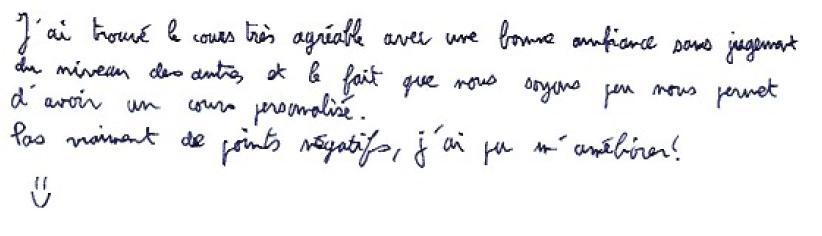 J'ai trouvé le cours très agréable avec une bonne ambiance sans jugement
du niveau des autres et le fait que nous soyons peu nous permet
d'avoir un cours personnalisé.
Pas vraiment de points négatifs, j'ai pu m'améliorer!